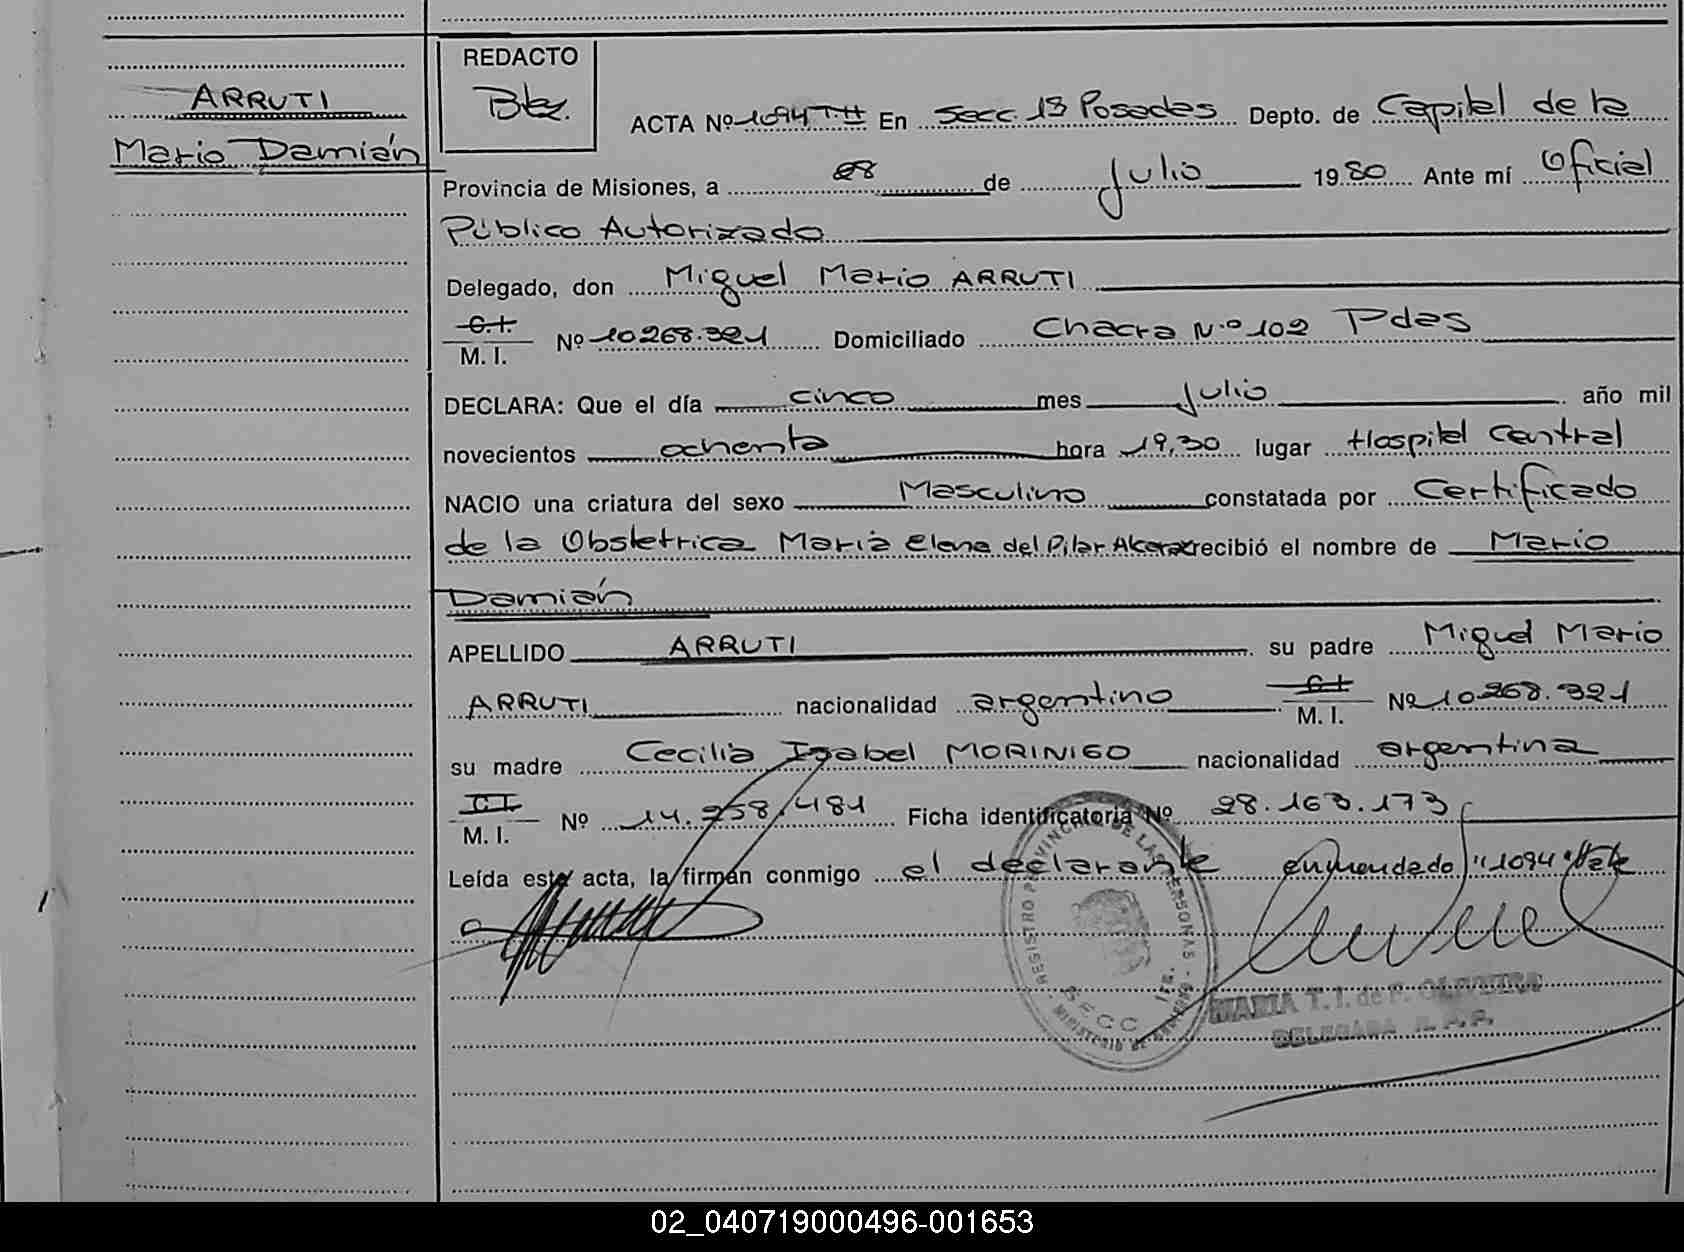 REDACTO
ARRUTI
Mario Damián
ACTA Nº 1094 TH En Secc. 1ª Posadas Depto. de Capital de la
Provincia de Misiones, a 08 de Julio 1980 Ante mí Oficial
Público Autorizado
Delegado, don Miguel Mario ARRUTI
C.I.
M. I. Nº 10.268.321 Domiciliado Chacra N.º 102 Pdas
DECLARA: Que el día cinco mes Julio año mil
novecientos ochenta hora 19,30 lugar Hospital Central
NACIO una criatura del sexo Masculino constatada por Certificado
de la Obstetrica Maria Elena del Pilar recibió el nombre de Mario
Damián
APELLIDO ARRUTI su padre Miguel Mario
ARRUTI nacionalidad argentino C.I. M. I. Nº 10.268.321
su madre Cecilia Isabel MORINIGO nacionalidad argentina
C.I.
M. I. Nº 14.258.481 Ficha identificatoria Nº 28.163.173
Leída esta acta, la firman conmigo el declarante enmendado "1094" Vale
REGISTRO PROVINCIAL DE LAS PERSONAS
SECC. 1ra.
MINISTERIO DE GOBIERNO
MARIA T. I. de F. OLIVEIRA
DELEGADA R. P. P.
02_040719000496-001653